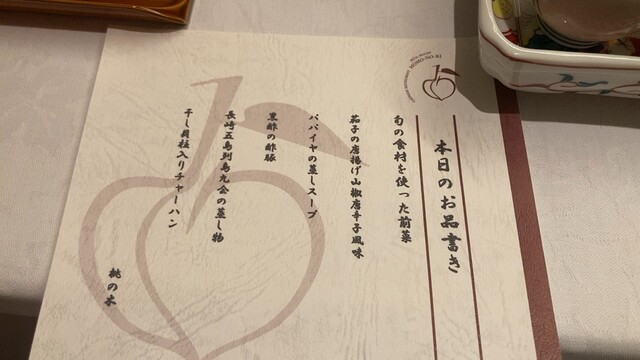 本日のお品書き
旬の食材を使った前菜
茄子の唐揚げ山椒唐辛子風味
パパイヤの蒸しスープ
黒酢の酢豚
長崎五島列島九会の蒸し物
干し貝柱入りチャーハン
桃の木